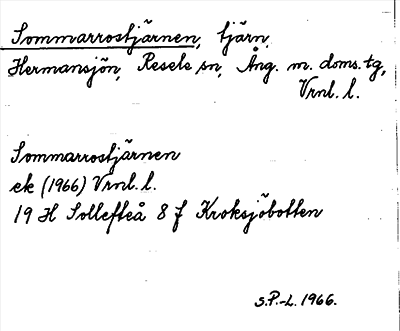 Sommarrostjärnen, tjärn,
Hermansjön, Resele sn, Ång. m. doms. tg,
Vrnl. l.
Sommarrostjärnen
ek (1966) Vrnl. l.
19 H Sollefteå 8 f Kroksjöbotten
S.P.-L. 1966.